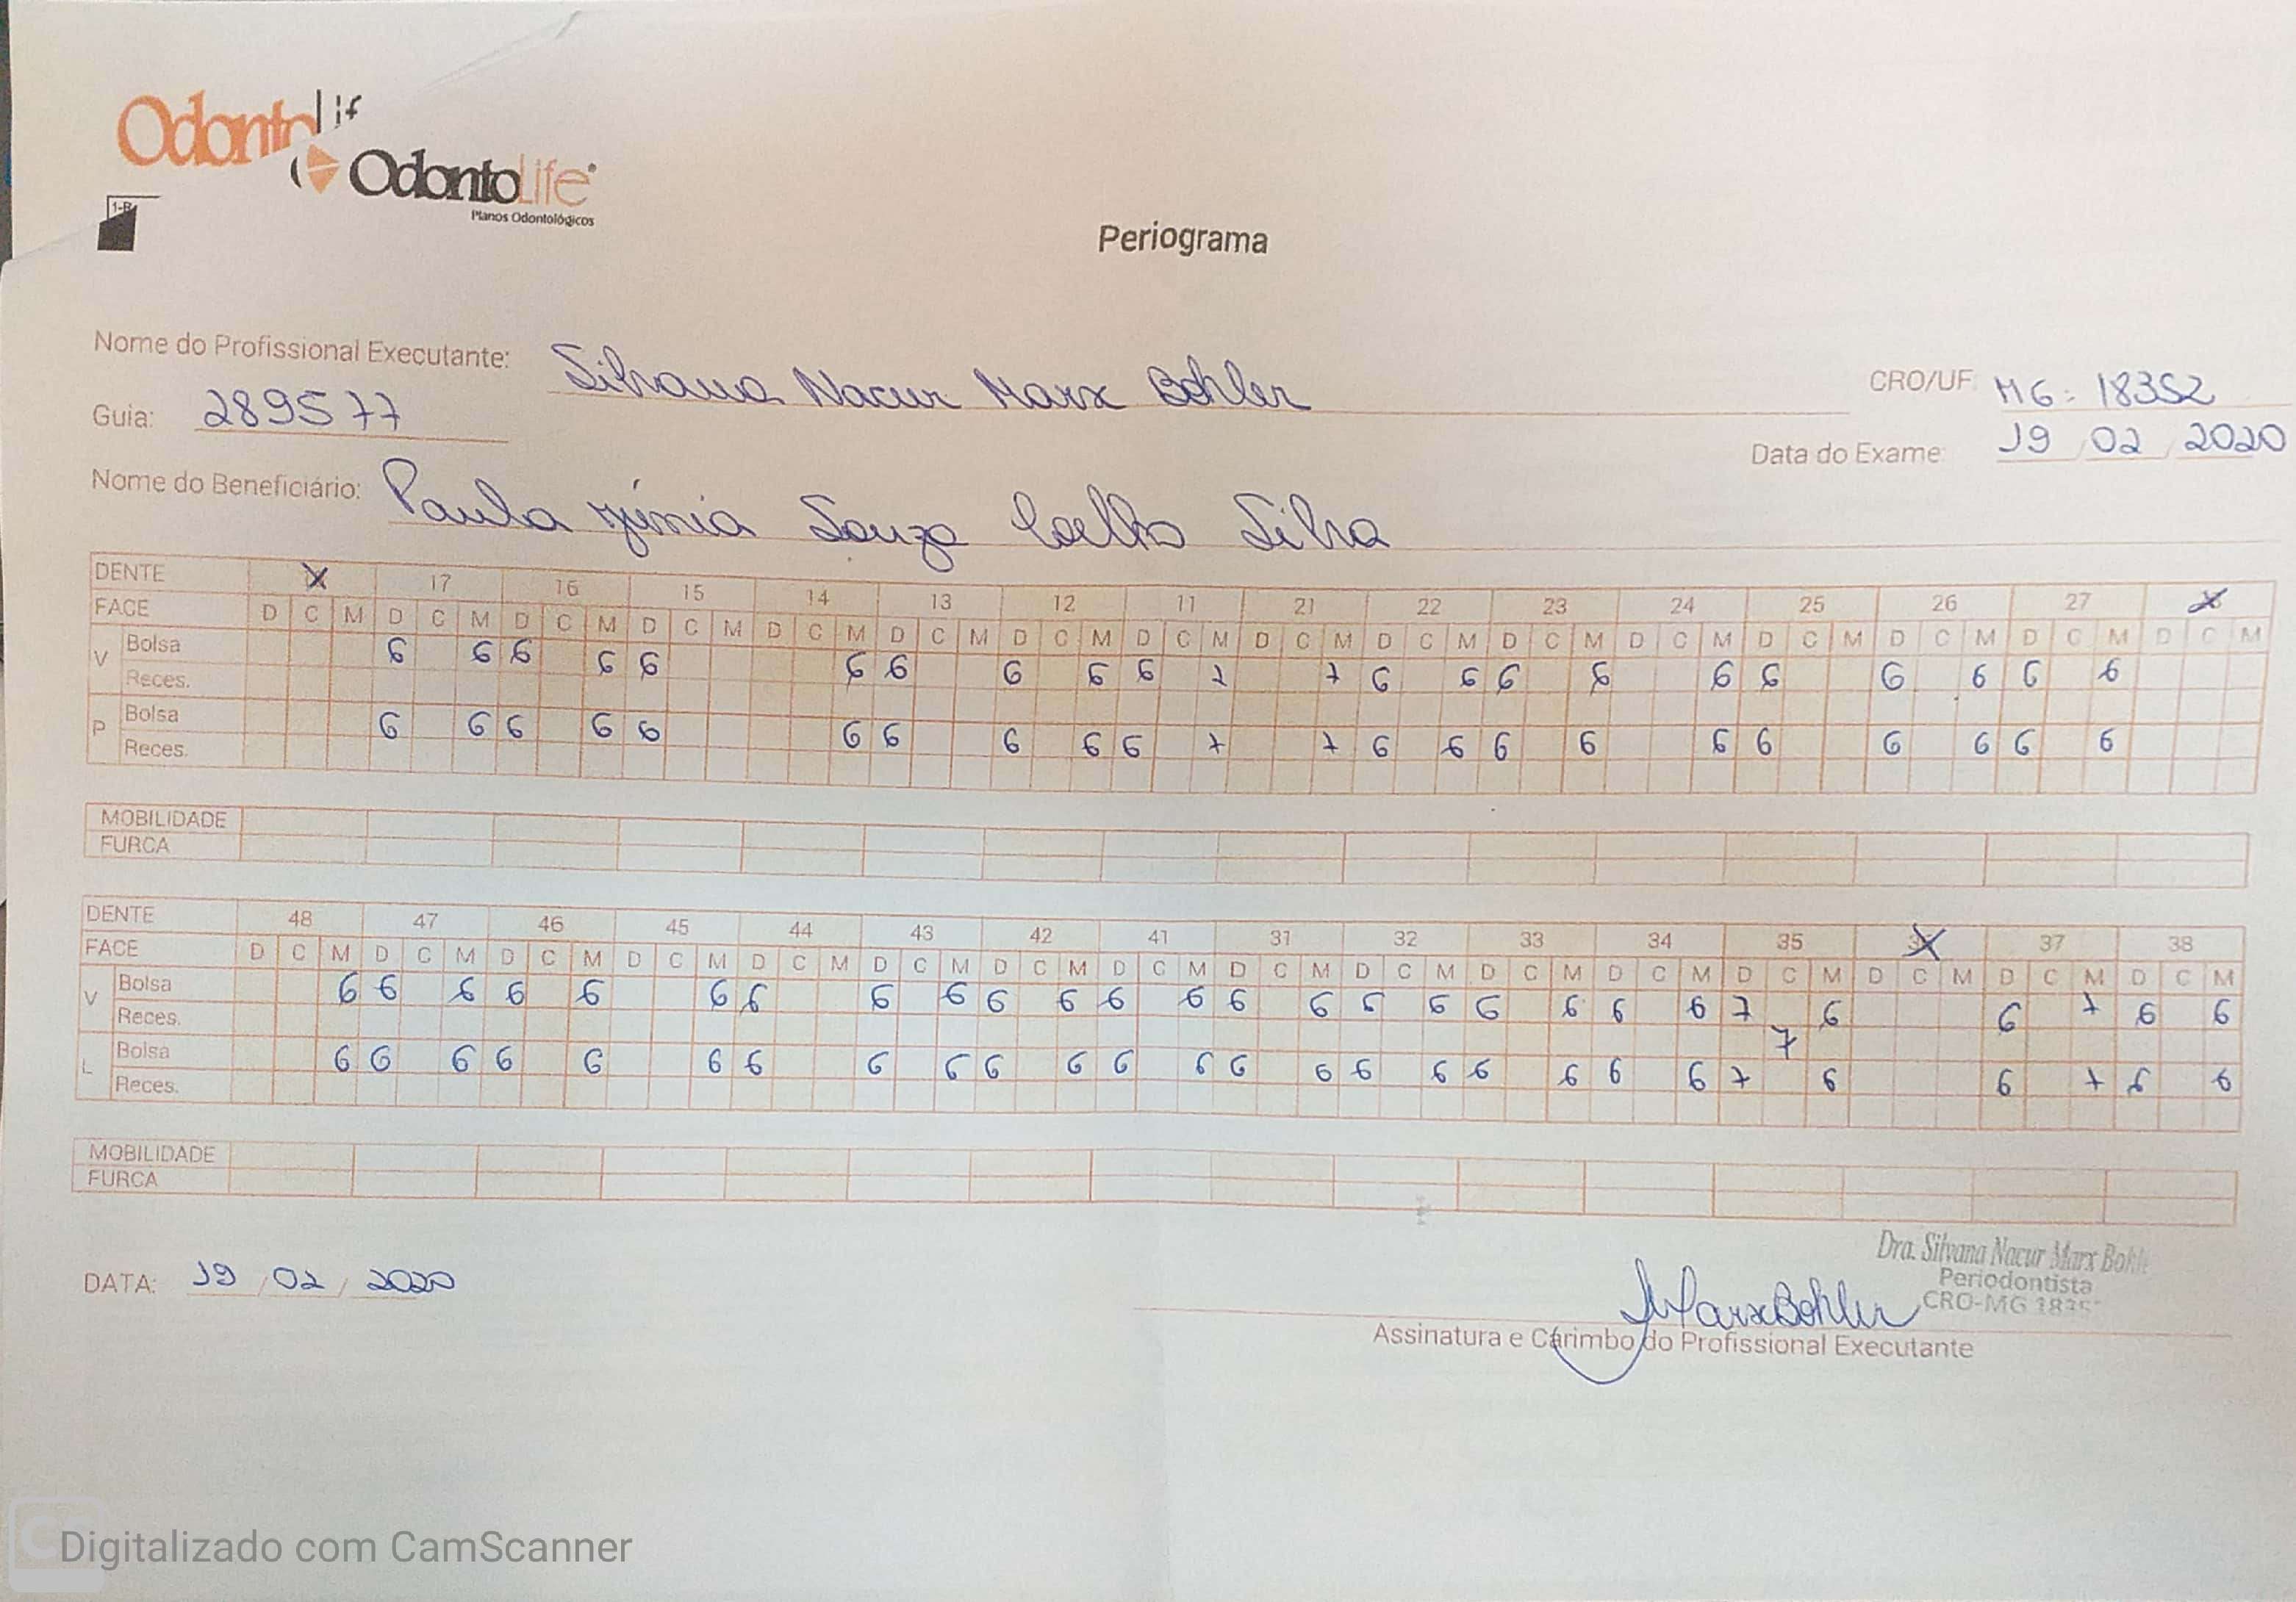 Odontolif
OdontoLife
Planos Odontológicos
1-B
Periograma
Nome do Profissional Executante: Silvana Nacur Marx Bohler
CRO/UF: MG: 18352
Guia: 289577
Data do Exame: 19 / 02 / 2020
Nome do Beneficiário: Paula Souza Coelho Silva
DENTE X 17 16 15 14 13 12 11 21 22 23 24 25 26 27 X
FACE D C M D C M D C M D C M D C M D C M D C M D C M D C M D C M D C M D C M D C M D C M D C M D C M
V Bolsa 6 6 6 6 6 6 6 6 6 6 7 7 6 6 6 6 6 6 6 6 6 6
Reces.
P Bolsa 6 6 6 6 6 6 6 6 6 6 7 7 6 6 6 6 6 6 6 6 6 6
Reces.
MOBILIDADE
FURCA
DENTE 48 47 46 45 44 43 42 41 31 32 33 34 35 X 37 38
FACE D C M D C M D C M D C M D C M D C M D C M D C M D C M D C M D C M D C M D C M D C M D C M D C M
V Bolsa 6 6 6 6 6 6 6 6 6 6 6 6 6 6 6 6 6 6 6 6 6 7 6 6 7 6 6
Reces. 7
L Bolsa 6 6 6 6 6 6 6 6 6 6 6 6 6 6 6 6 6 6 6 6 6 7 6 6 7 6 6
Reces.
MOBILIDADE
FURCA
Dra. Silvana Nacur Marx Bohle
Periodontista
CRO-MG 1835
DATA: 19 / 02 / 2020
MarxBohler
Assinatura e Carimbo do Profissional Executante
Digitalizado com CamScanner